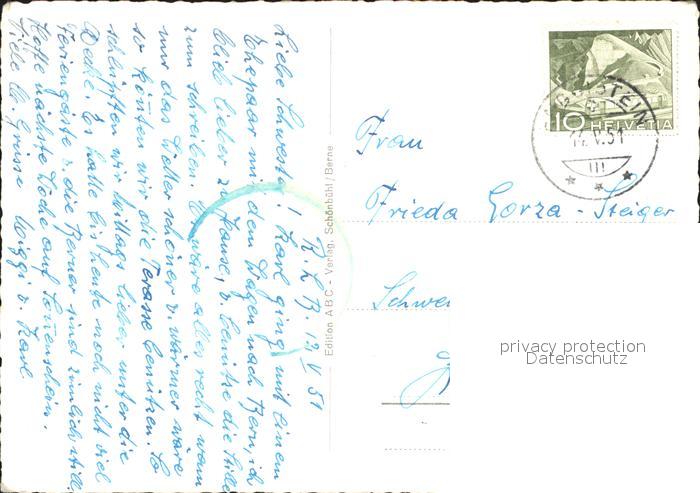 R. L. B. 13. V. 51
Liebe Schwester! Karl ging mit einem
Ehepaar mit dem Wagen nach Bern, ich
blieb lieber zu Hause, u. benütze die Stille
zum schreiben. Es wäre alles recht wenn
nur das Wetter schöner u. wärmer wäre
so könten wir die Terasse benützen. So
schlüpften wir Mittags lieber unter die
Decke. Es hatte bis heute noch nicht viel
Feriengäste u. die Berner sind zimlich still.
Hoffe nächste Woche auf Sonnenschein.
Viele lb. Grüsse Miggi u. Karl.
Edition A B C - Verlag, Schönbühl/Berne
10 HELVETIA
V. 51
III
Frau
Frieda Gorza - Steiger
Schwe
privacy protection
Datenschutz